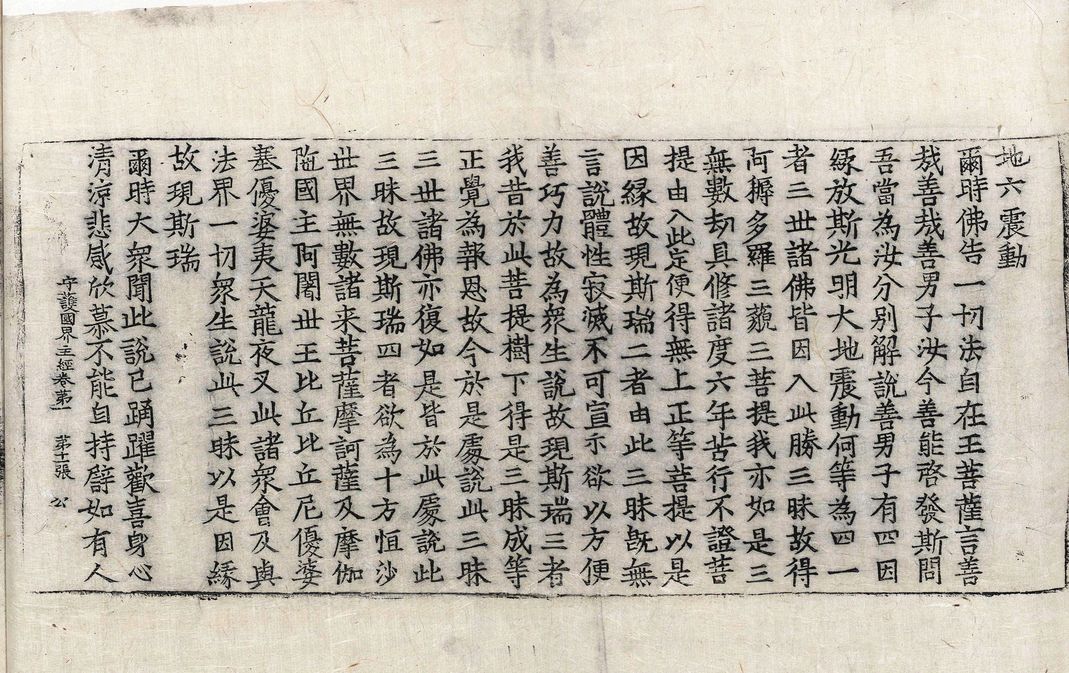 地六震動
爾時佛告一切法自在王菩薩言善
哉善哉善男子汝今善能啓發斯問
吾當為汝分別解說善男子有四因
緣放斯光明大地震動何等為四一
者三世諸佛皆因入此勝三昧故得
阿耨多羅三藐三菩提我亦如是三
無數劫具修諸度六年苦行不證菩
提由入此定便得無上正等菩提以是
因緣故現斯瑞二者由此三昧旣無
言說體性寂滅不可宣示欲以方便
善巧力故為衆生說故現斯瑞三者
我昔於此菩提樹下得是三昧成等
正覺為報恩故今於是處說此三昧
三世諸佛亦復如是皆於此處說此
三昧故現斯瑞四者欲為十方恒沙
世界無數諸来菩薩摩訶薩及摩伽
陁國主阿闍世王比丘比丘尼優婆
塞優婆夷天龍夜叉此諸衆會及與
法界一切衆生說此三昧以是因緣
故現斯瑞
爾時大衆聞此說已踊躍歡喜身心
清涼悲感欣慕不能自持譬如有人
守護國界主經卷第一 第十張 公